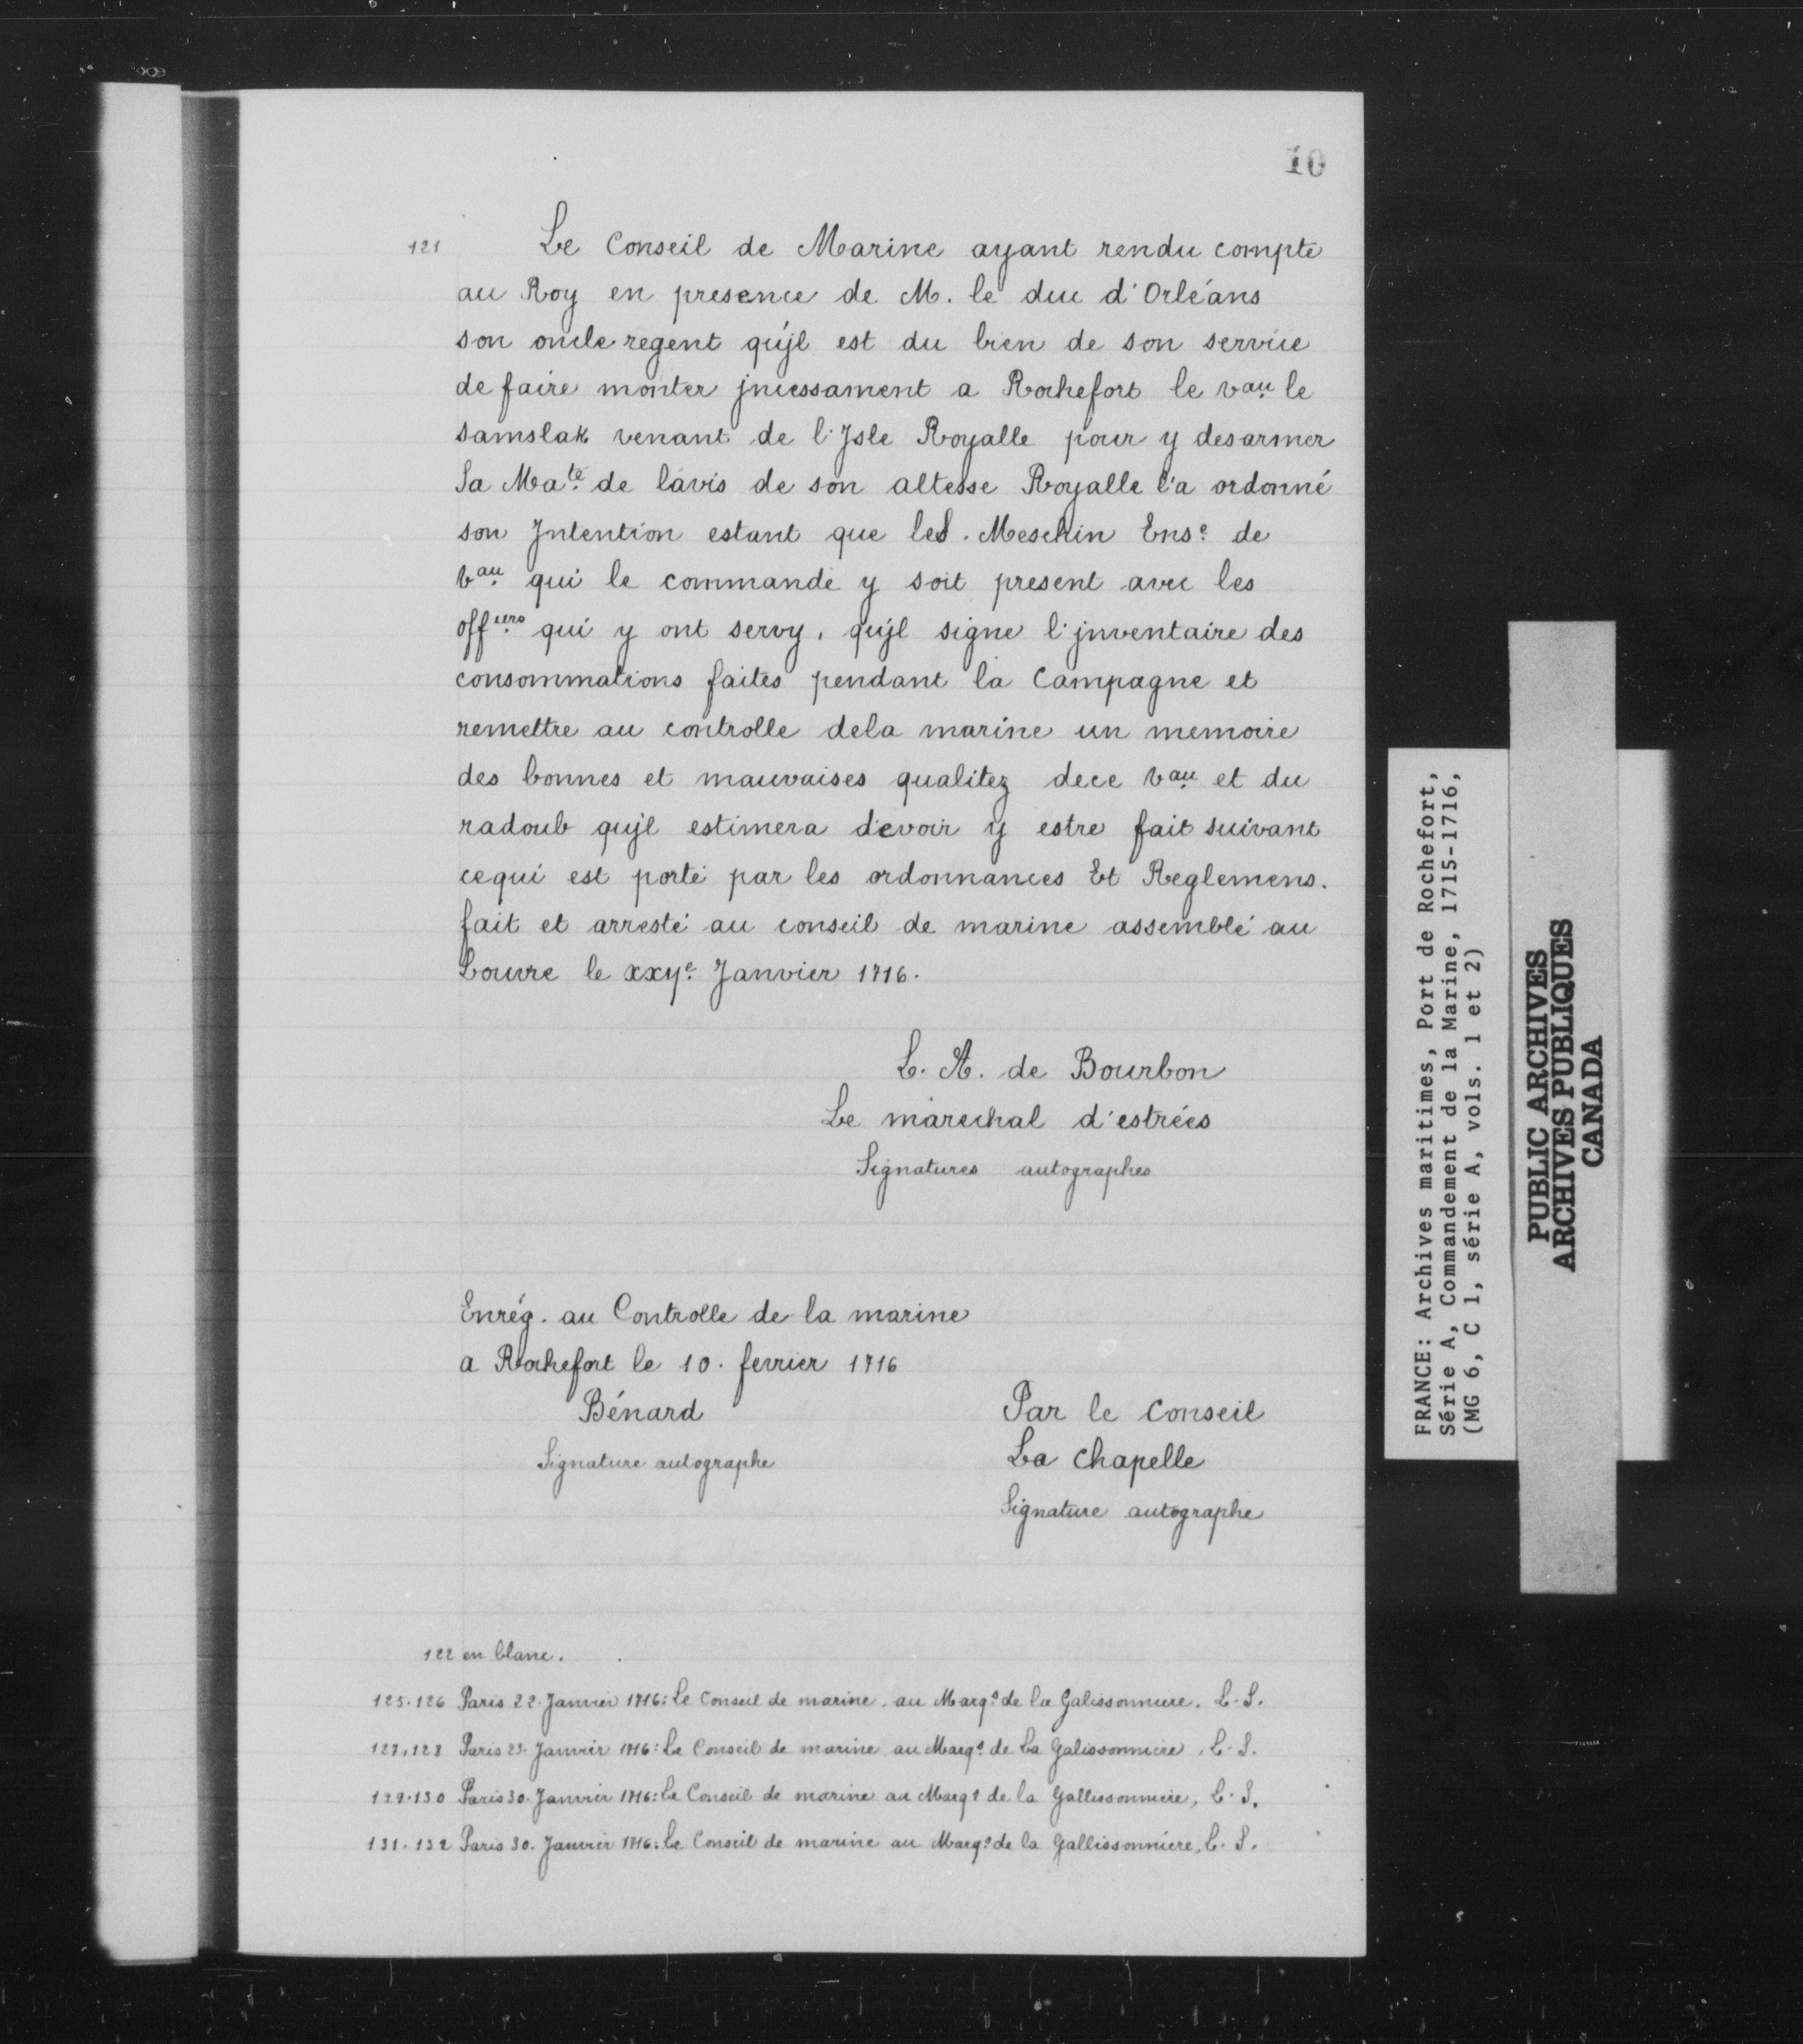 10
121 Le Conseil de Marine ayant rendu compte
au Roy en presence de M. le duc d'Orléans
son oncle regent qu'jl est du bien de son service
de faire monter jncessament a Rochefort le vau. le
samslak venant de l'Jsle Royalle pour y desarmer
Sa Mate. de lavis de son altesse Royalle l'a ordonné
son Jntention estant que le S. Meschin Ense. de
Vau. qui le commande y soit present avec les
officiers qui y ont servy, qu'jl signe l'jnventaire des
consommations faites pendant la Campagne et
remettre au controlle dela marine un memoire
des bonnes et mauvaises qualitez dece Vau. et du
radoub qu'jl estimera devoir y estre fait suivant
cequi est porté par les ordonnances Et Reglemens.
fait et arresté au conseil de marine assemblé au
Louvre le xxye. Janvier 1716.
L. A. de Bourbon
Le marechal d'estrées
Signatures autographes
Enrég. au Controlle de la marine
a Rochefort le 10. fevrier 1716
Bénard
Signature autographe
Par le Conseil
La Chapelle
Signature autographe
122 en blanc.
125.126 Paris 22. Janvier 1716: Le Conseil de marine. au Marqs. de la Galissonniere. L. S.
127.128 Paris 23. Janvier 1716: Le Conseil de marine au Marqs. de La Galissonniere, L. S.
129.130 Paris 30. Janvier 1716: Le Conseil de marine au Marqs de la Gallissonniere, L. S.
131.132 Paris 30. Janvier 1716: Le Conseil de marine au Marqs. de la Gallissonniere, L. S.
FRANCE: Archives maritimes, Port de Rochefort,
Série A, Commandement de la Marine, 1715-1716,
(MG 6, C 1, série A, vols. 1 et 2)
PUBLIC ARCHIVES
ARCHIVES PUBLIQUES
CANADA